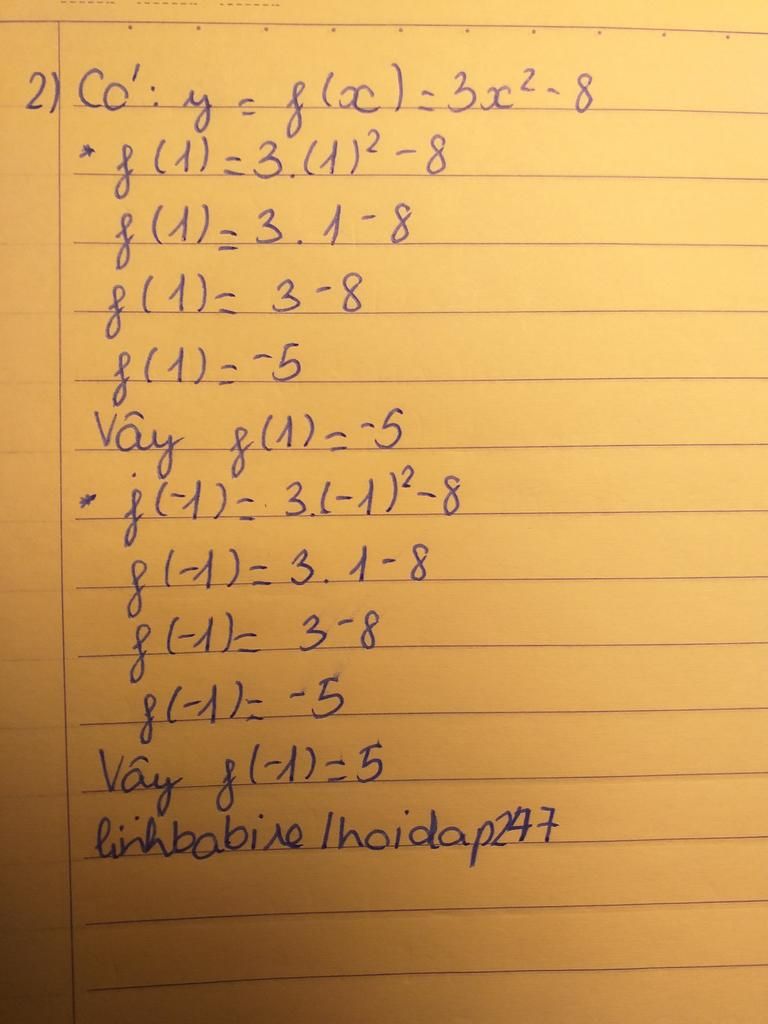 2) Có: y = f(x) = 3x² - 8
* f(1) = 3.(1)² - 8
f(1) = 3 . 1 - 8
f(1) = 3 - 8
f(1) = -5
Vậy f(1) = -5
* f(-1) = 3.(-1)² - 8
f(-1) = 3 . 1 - 8
f(-1) = 3 - 8
f(-1) = -5
Vậy f(-1) = 5
linhbabie /hoidap247